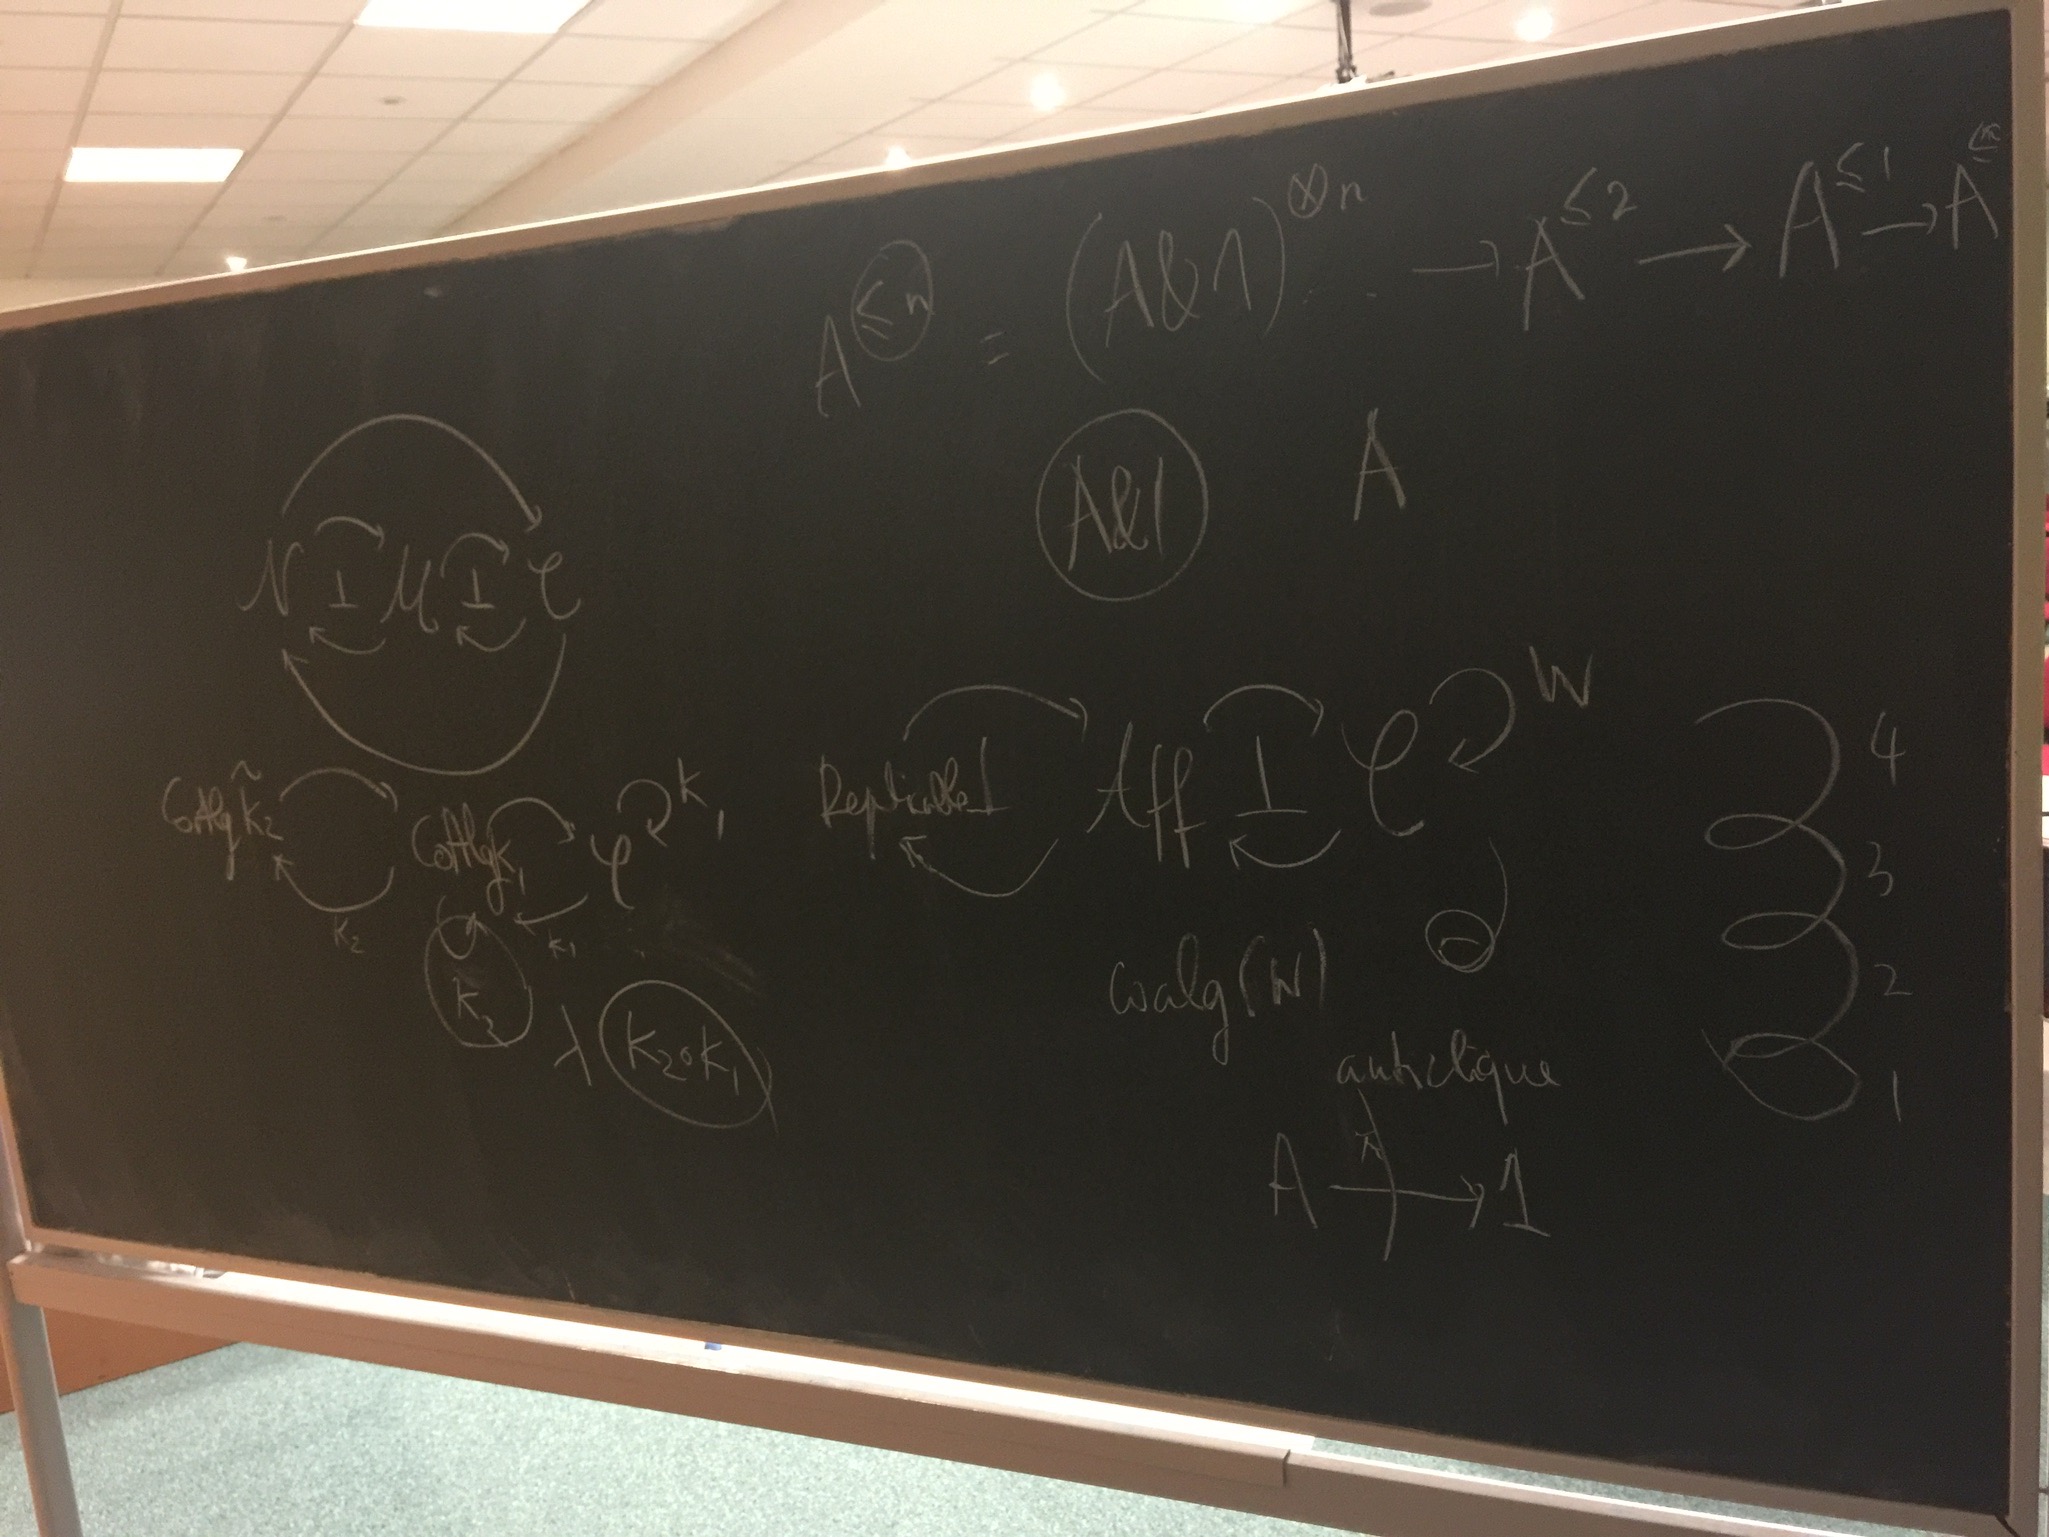 A^{≤n} = (A&1)^{⊗n} ... → A^{≤2} → A^{≤1} → A
A&1 A
N ⊥ M ⊥ C
CoAlg K̃₂ CoAlg K₁ C K₁
K₂ K₁
K₂
λ K₂∘K₁
Replicable ⊥ Aff ⊥ C W
coalg(W)
anticlique
A → 1
4
3
2
1